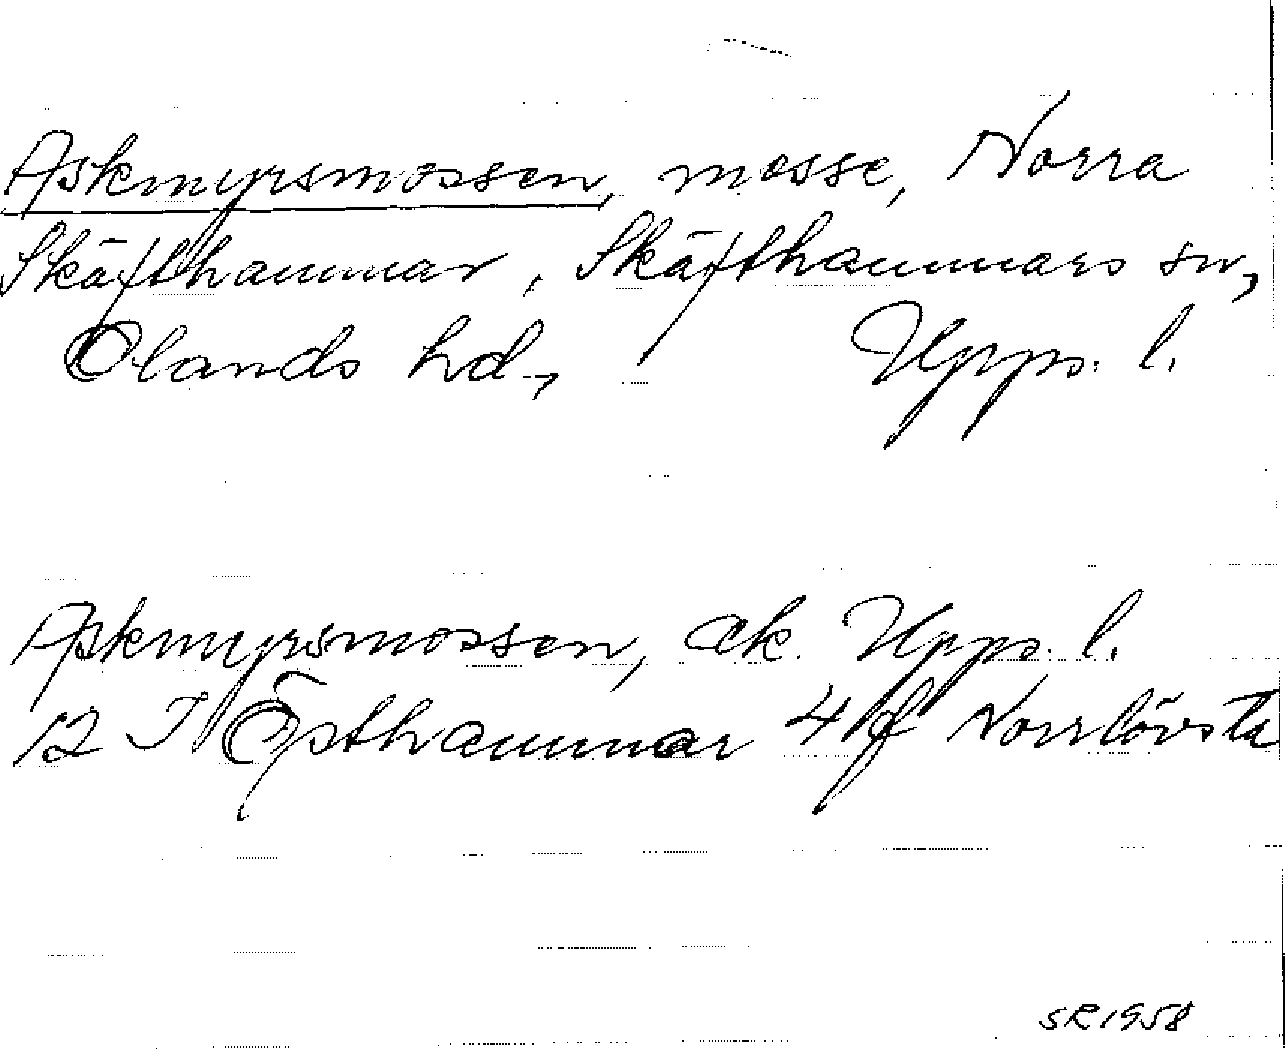 Askmyrsmossen, mosse, Norra
Skäfthammar, Skäfthammars sn,
Olands hd, Upps. l.
Askmyrsmossen, ek. Upps. l.
12 I Östhammar 4 f Norrlövsta
SR 1958